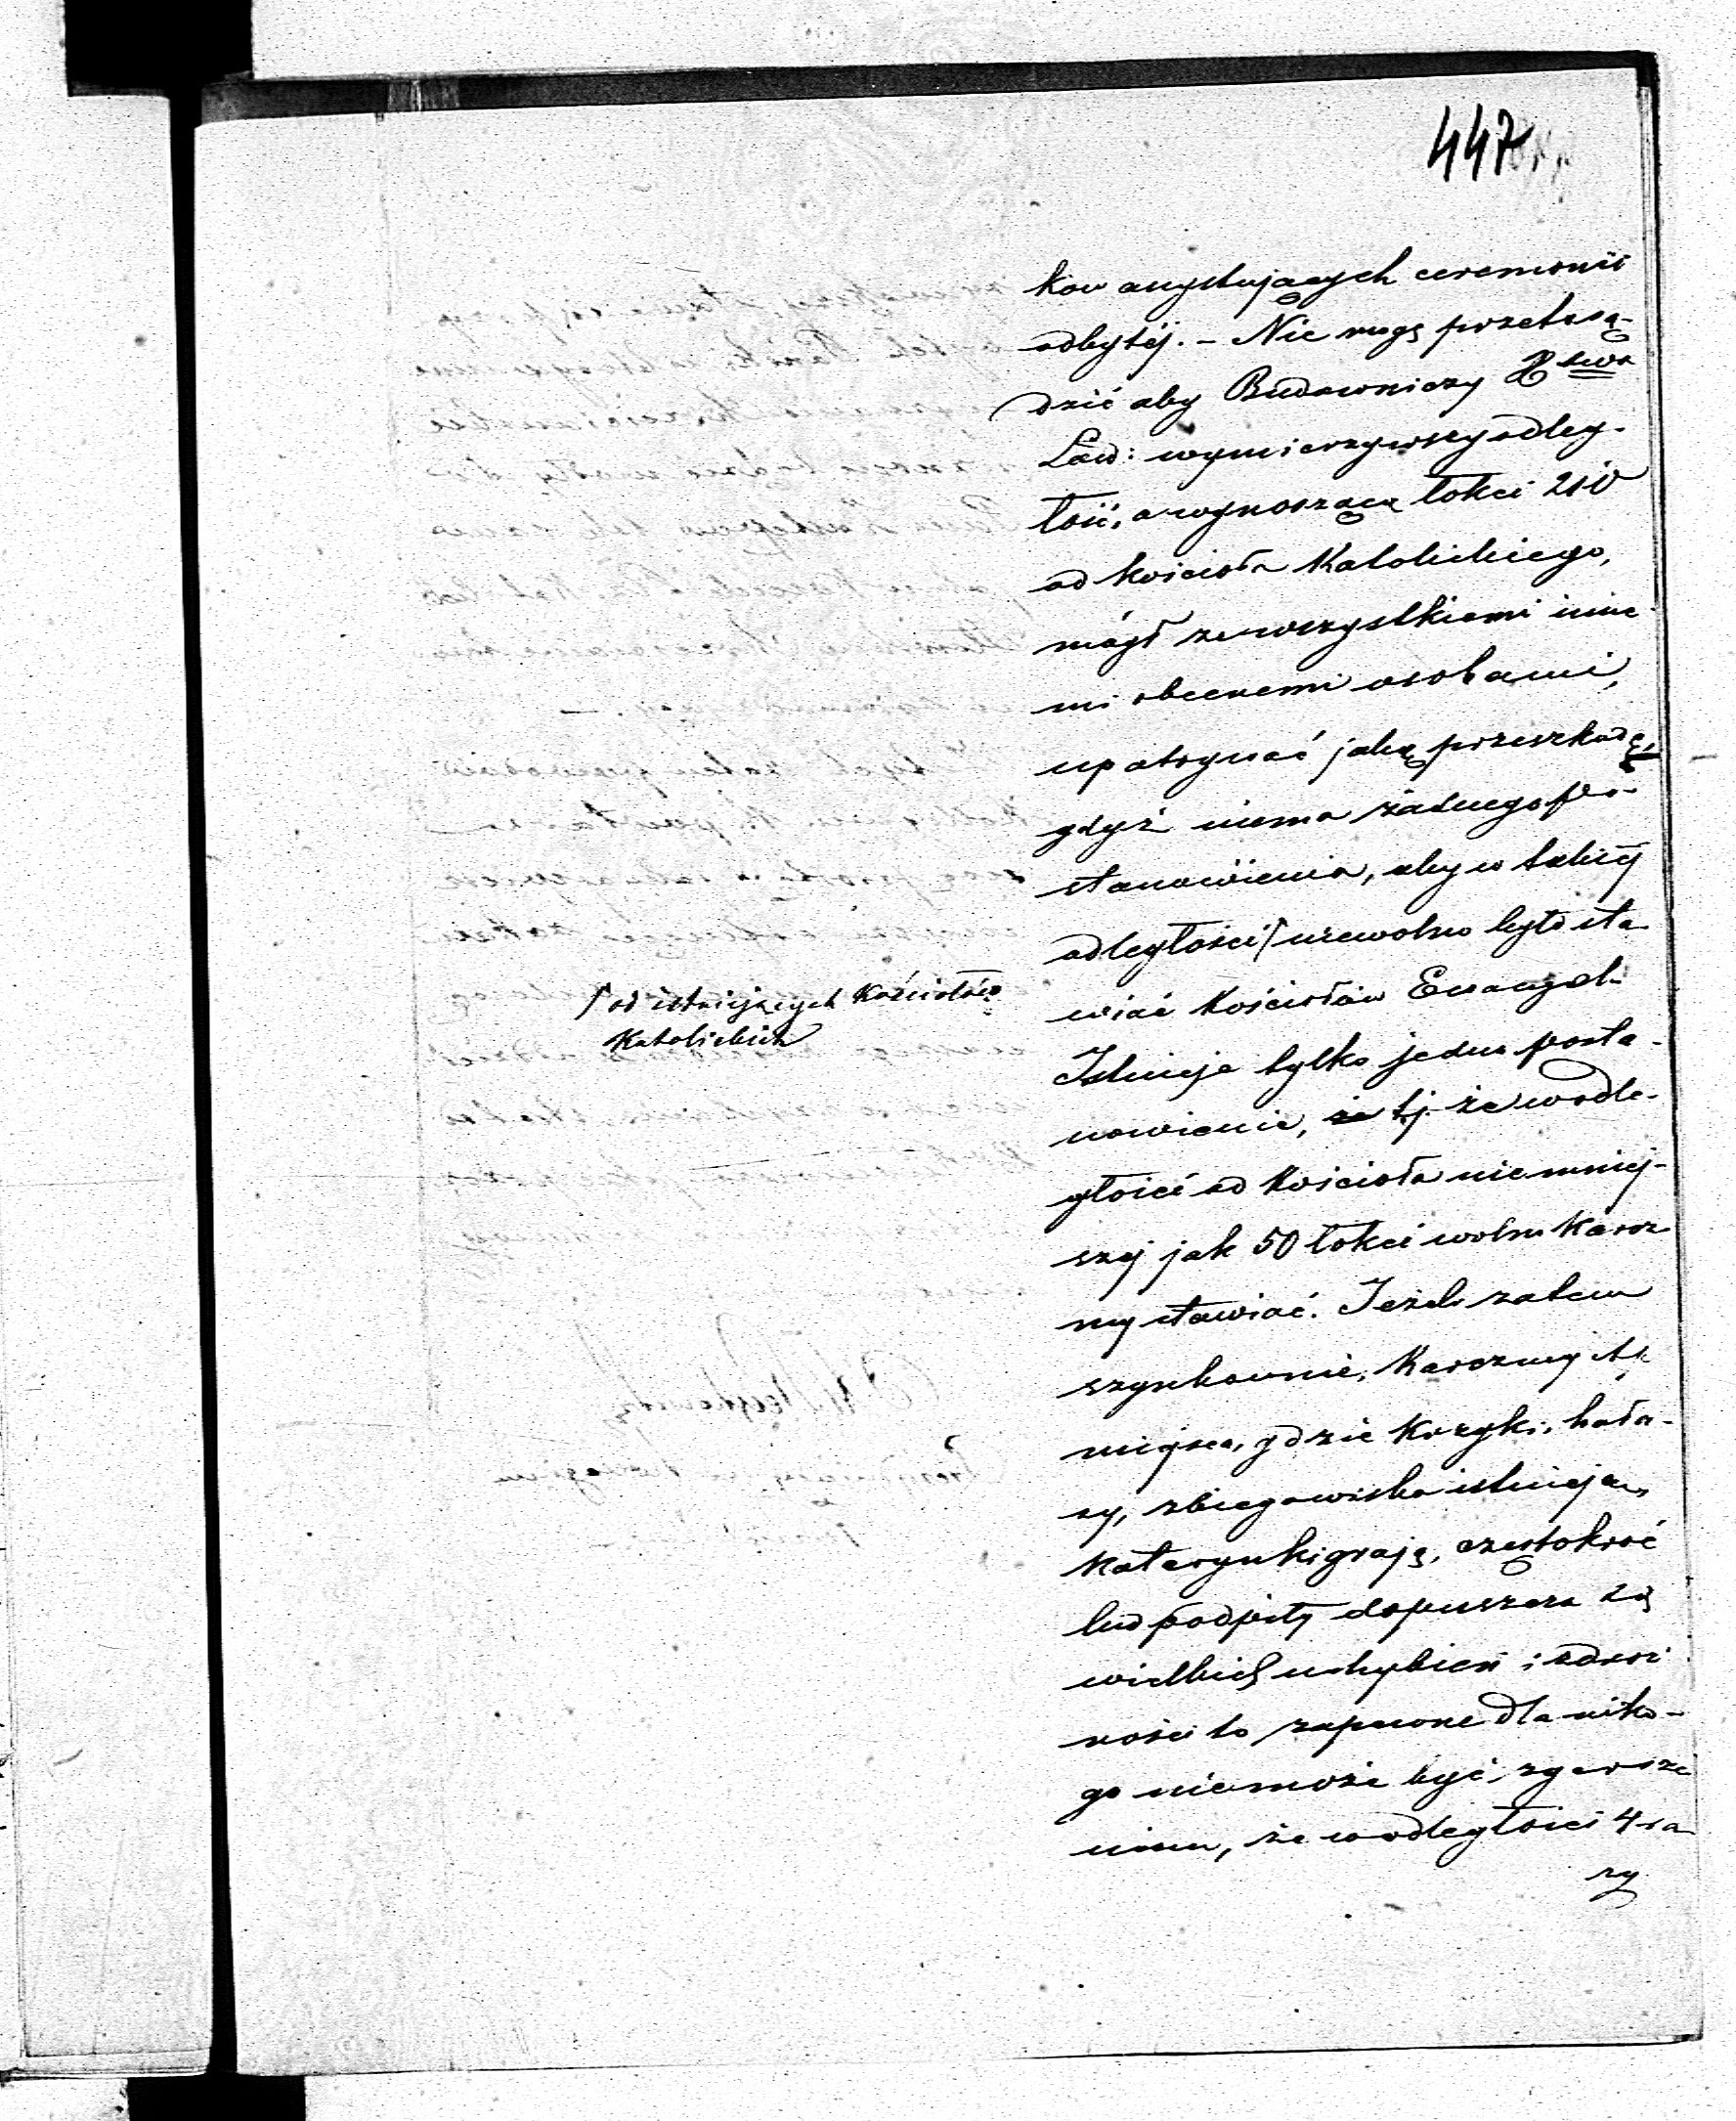 447
ków asystujących ceremonii
odbytéj. – Nie mogę przetosą-
dzić aby Budowniczy Pstwa
Ław: wymierzywszy odleg-
łość, a wynoszącą łokci 210
od kościoła Katolickiego,
mógł ze wszystkiemi inne
mi obecnemi osobami,
upatrywać jaką przeszkodę,
gdyż niema żadnego po-
stanowienia, aby w takiéj
odległości / niewolno było sta
wiać kościołów Ewangel:
Istnieje tylko jedno posta-
nowienie, że tj. że w odle-
głości od Kościoła nie mniej-
szej jak 50 łokci wolno Karcz
my stawiać. Jeżeli zatem
szynkownie, Karczmy są
miejsca, gdzie Krzyki, hała-
sy, zbiegowiska istnieją,
Katarynki grają, częstokroć
lud podpiły dopuszcza się
wielkich uchybień i zdroż
ności to zapewne dla niko-
go nie może być zgorsze
niem, że w odległości 4 ra
zy
/ od istniejących Kościołów
Katolickich